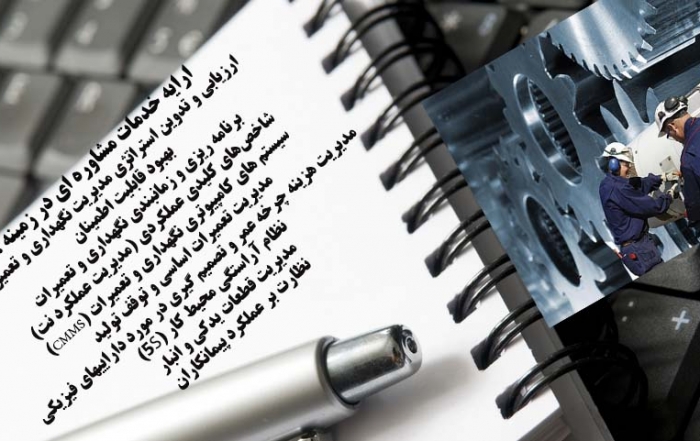 ارایه خدمات مشاوره ای در زمینه
ارزیابی و تدوین استراتژی مدیریت نگهداری و تعمیر
بهبود قابلیت اطمینان
برنامه ریزی و زمانبندی نگهداری و تعمیرات
شاخص‌های کلیدی عملکردی (مدیریت عملکرد نت)
سیستم های کامپیوتری نگهداری و تعمیرات (CMMS)
مدیریت تعمیرات اساسی و توقف تولید
مدیریت هزینه چرخه عمر و تصمیم گیری در مورد داراییهای فیزیکی
نظام آراستگی محیط کار (5S)
مدیریت قطعات یدکی و انبار
نظارت بر عملکرد پیمانکاران